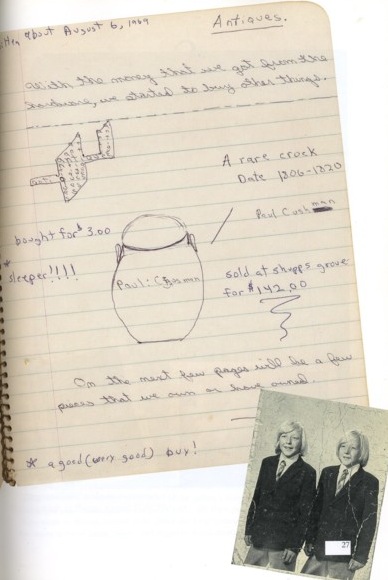 about August 6, 1969
Antiques.
With the money that we got from the
hardware, we started to buy other things.
A rare crock
Date 1806-1820
Paul Cushman
bought for $3.00
* sleeper!!!!
Paul: Cushman
sold at shupps grove
for $142.00
On the next few pages will be a few
pieces that we own or have owned.
* a good (very good) buy!
27